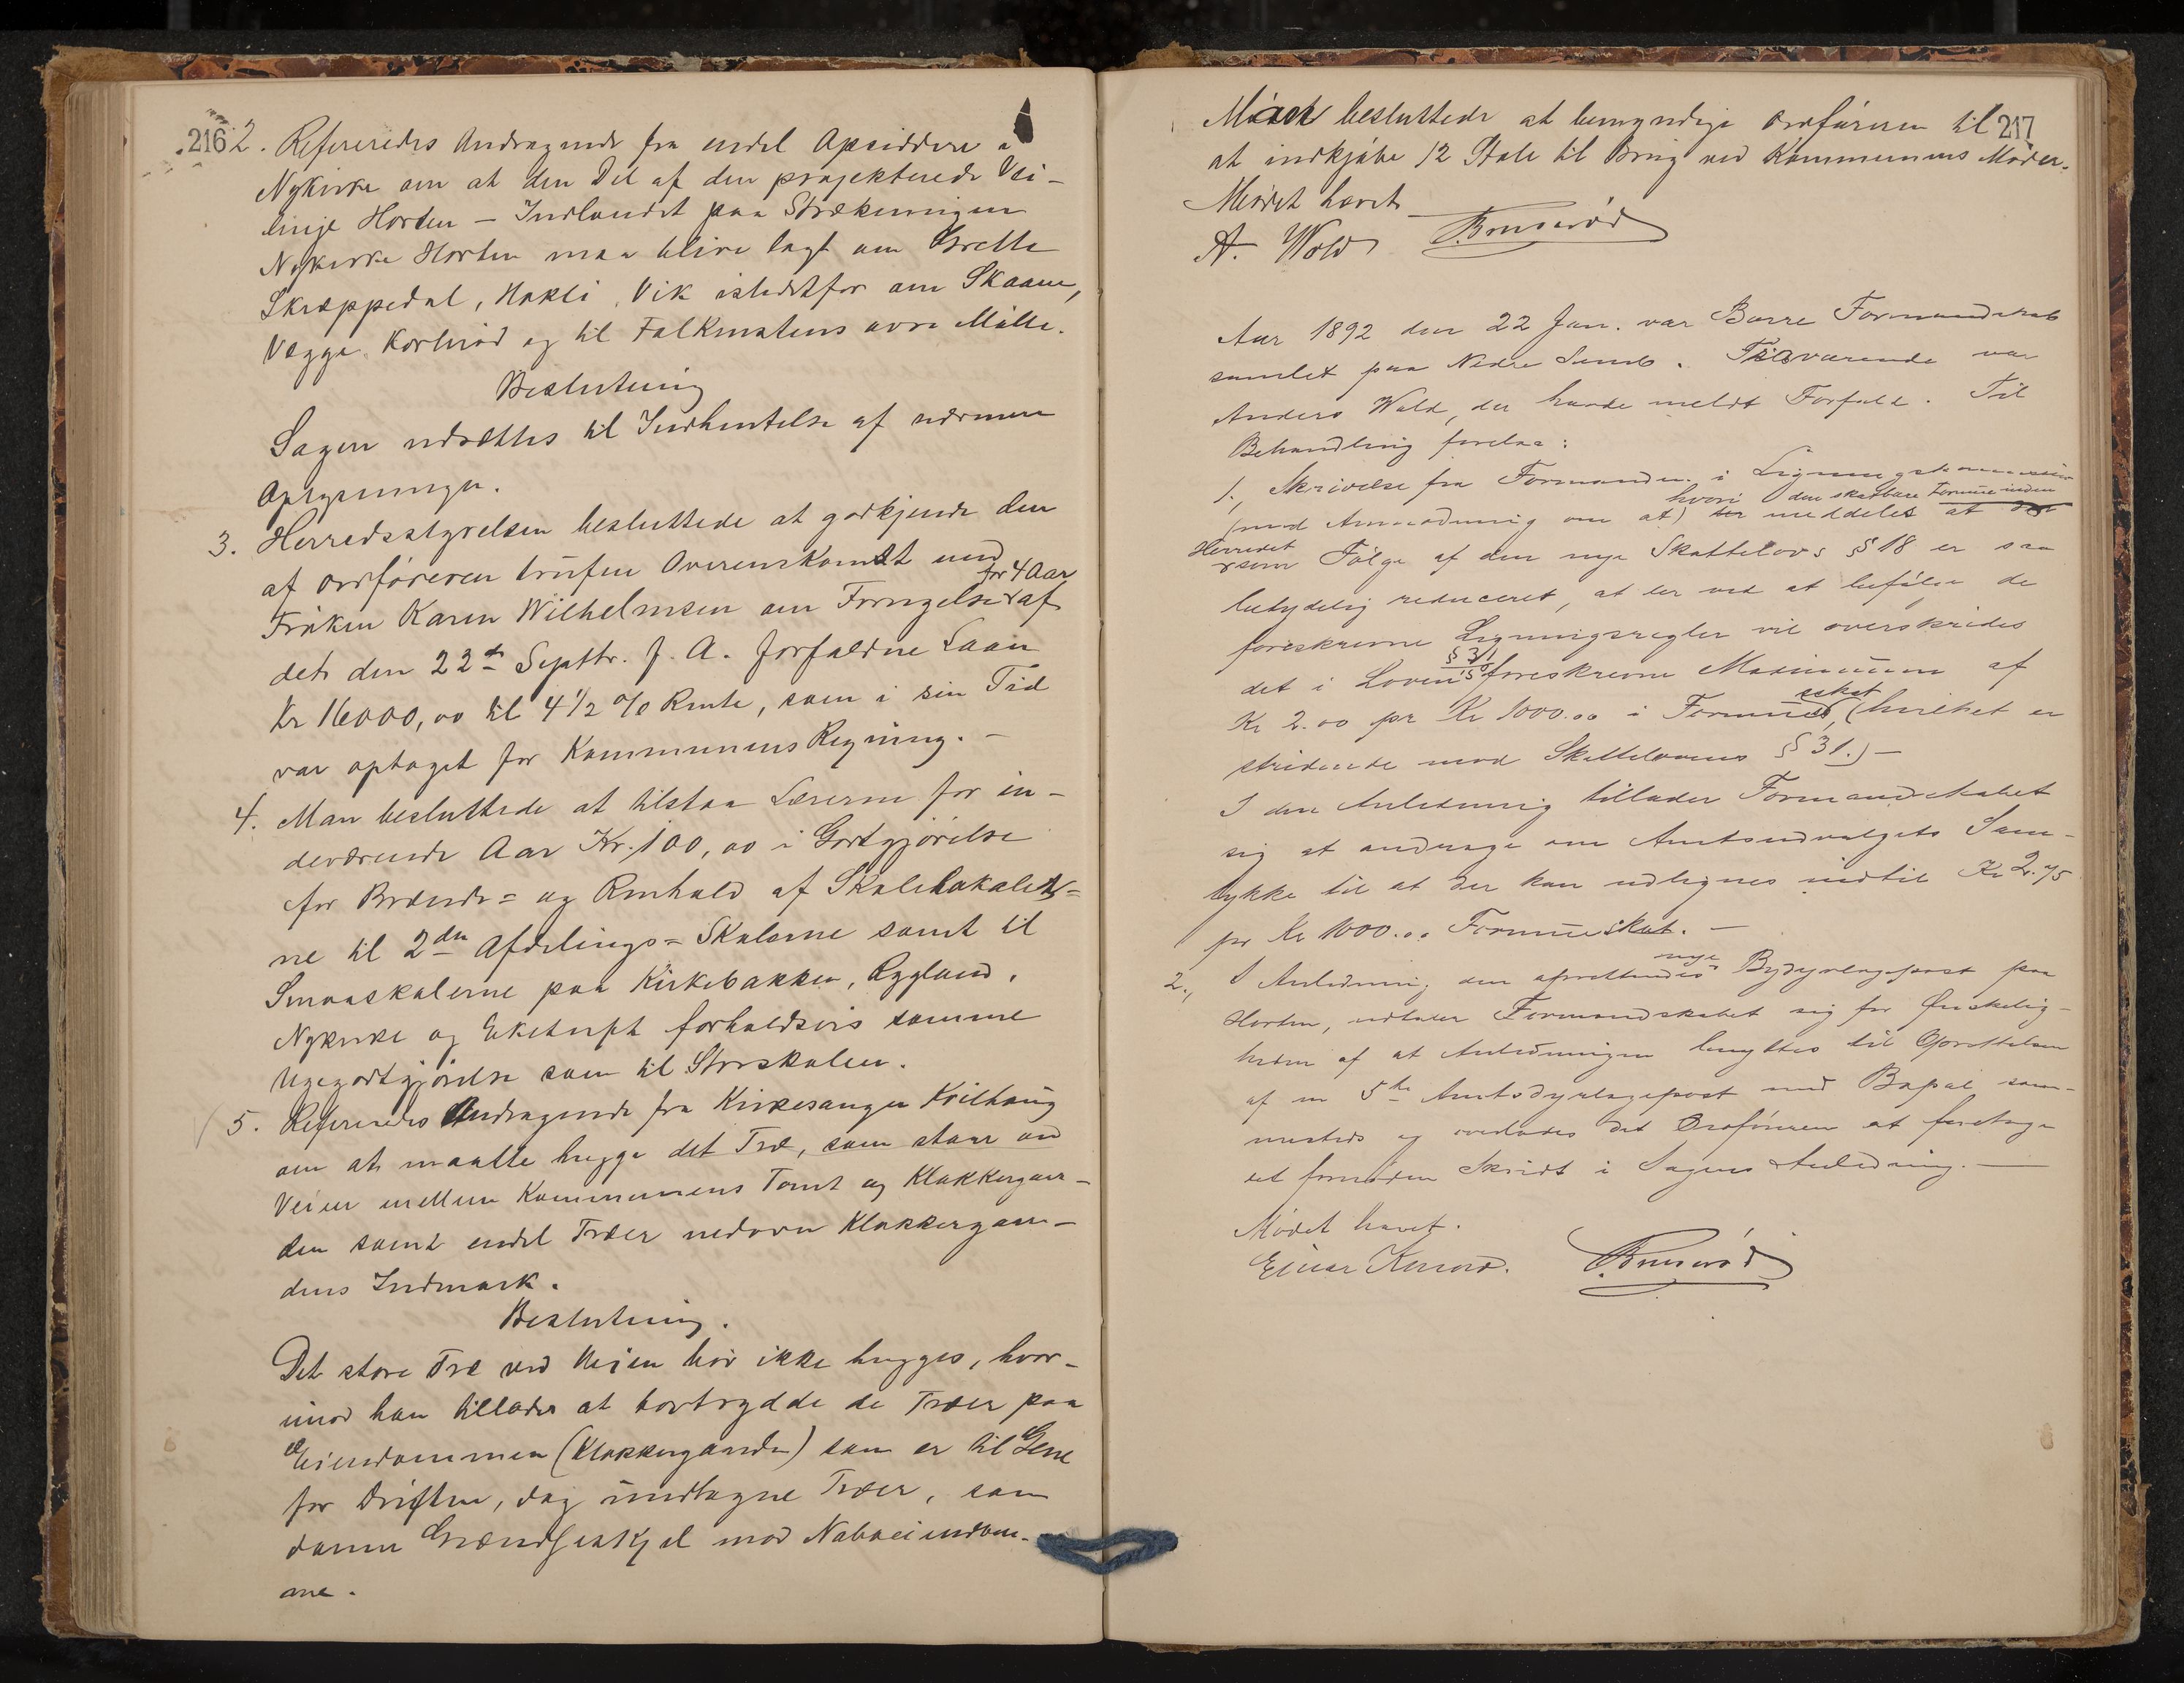 216
2. Refereredes Andragende fra endel Opsiddere i
Nykirke om at den Del af den projekterede Vei-
linje Horten – Indlandet paa Strækningen
Nykirke Horten maa blive lagt om Grette
Skræppedal, Hakli, Vik istedetfor om Skaane,
Vegge, Korterød og til Falkensteins øvre Mølle.
Beslutning
Sagen udsættes til Indhentelse af nærmere
Oplysninger.
3. Herredsstyrelsen besluttede at godkjende den
af Ordføreren trufne Overenskomst med
Frøken Karen Wilhelmsen om Fornyelse for 4 Aar af
det den 22de Septbr. f. A. forfaldne Laan
Kr 16000,00 til 4 1/2 % Rente, som i sin Tid
var optaget for Kommunens Regning. –
4. Man besluttede at tilstaa Lærerne for in-
deværende Aar Kr. 100,00 i Godtgjørelse
for Brænde= og Renhold af Skolelokaler=
ne til 2den Afdelings=Skolerne samt til
Smaaskolerne paa Kirkebakken, Rygland,
Nykirke og Eketupt forholdsvis samme
Ugegodtgjørelse som til Storskolen.
5. Refereredes Andragende fra Kirkesanger Kvilhaug
om at maatte hugge det Træ, som staar ved
Veien mellem Kommunens Tomt og Klokkergaar-
den samt endel Træer nedover Klokkergaar-
dens Indmark.
Beslutning.
Det store Træ ved Veien bør ikke hugges, hvor-
imod han tillades at bortrydde de Træer paa
Eiendommen (Klokkergaarden) som er til Gene
for Driften, dog undtagne Træer, som
danne Grændseskjel mod Naboeiendom-
me.
217
Man besluttede at bemyndige Ordføreren til
at indkjøbe 12 Stole til Brug ved Kommunens Møder.
Mødet hævet
A. Wold Brunerød
Aar 1892 den 22 Jan. var Borre Formandskab
samlet paa Nedre Semb. Fraværende var
Anders Wold, der havde meldt Forfald. Til
Behandling forelaa:
1., Skrivelse fra Formanden i Ligningskommission
(med Anmodning om at) hvori meddeles at den skatbare Formue inden
Herredet som Følge af den nye Skattelovs § 18 er saa
betydelig reduceret, at der ved at befølge de
foreskrevne Ligningsregler vil overskrides
det i Lovens § 31 foreskrevne Maximum af
Kr 2.00 pr Kr 1000.00 i Formueskat, (hvilket er
stridende mod Skattelovens § 31.) –
I den Anledning tillader Formandskabet
sig at andrage om Amtsudvalgets Sam-
tykke til at der kan udlignes indtil Kr 2.75
pr Kr 1000.00 Formueskat. –
2., I Anledning den oprettendes nye Bydyrlægepost paa
Horten, udtaler Formandskabet sig for Ønskelig-
heden af at Anledningen benyttes til Oprettelsen
af en 5te Amtsdyrlægepost med Bopæl sam-
mesteds og overlades det Ordføreren at foretage
det fornødne Skridt i Sagens Anledning. –
Mødet hævet.
Einar Brunerød